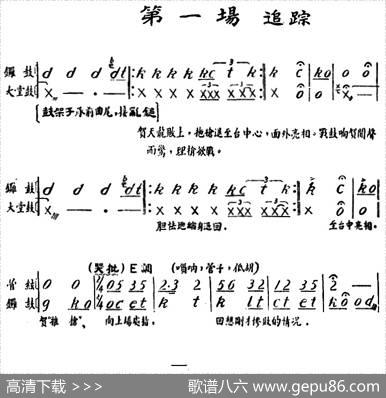 第一場 追踪
鑼鼓 d d d dt k k k k kc t k k c ko o o
大堂鼓 X X X X X XXX XXX X o o X
鼓架子水前曲尾，接亂鎚
賀天龍敗上，拖槍退至台中心，面外亮相。戰鼓响賀聞聲
而驚，迎槍欲戰。
鑼鼓 d d d dt k k k k kc t k k c ko
大堂鼓 X X X X X XXX XXX X o o
胆怯地轉身返回。 至台中亮相。
(哭批) E調 (嗩吶，管子，低胡)
管絃 0 0 2/4 05 35 2·3 2 56 32 12 35 2 —
鑼鼓 g ko 2/4 oc et k t k lt ct et ko od
賀"推槍"、 向上場處指。 回想剛才慘敗的情况。
高清下载 >>>
歌谱八六 www.gepu86.com